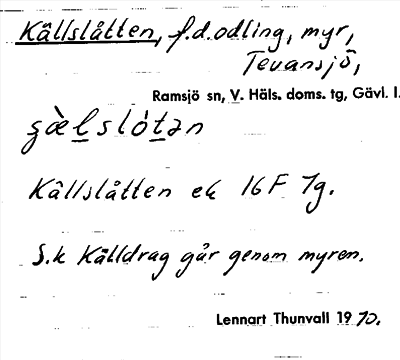 Källslåtten, f.d. odling, myr,
Tevansjö,
Ramsjö sn, V. Häls. doms. tg, Gävl. l.
Källslåtten ek 16F 7g.
S.k Källdrag går genom myren.
Lennart Thunvall 1970.